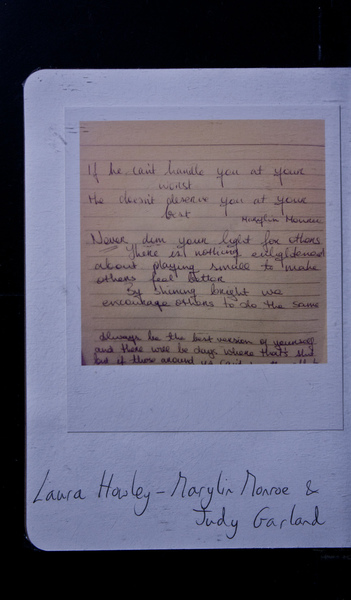 If he can't handle you at your
worst
He doesn't deserve you at your
best
Marylin Monroe
Never dim your light for others
There is nothing enlightened
about playing small to make
others feel better
By shining bright we
encourage others to do the same
Always be the best version of yourself
and there will be days where that's
but if those around
Laura Hawley - Marylin Monroe &
Judy Garland